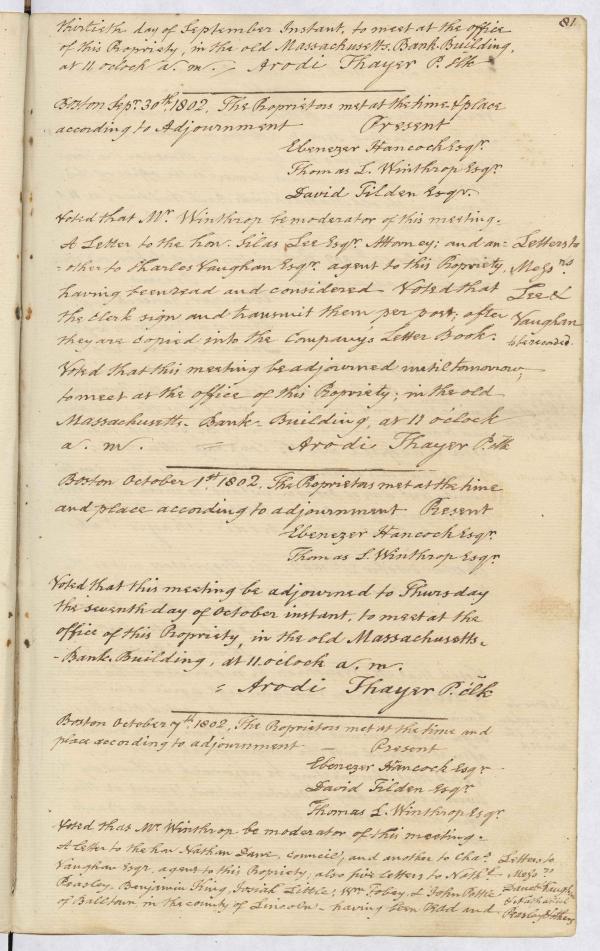 81
thirtieth day of September Instant, to meet at the office
of this Propriety, in the old Massachusetts Bank Building,
at 11 oclock a. m. Arodi Thayer P. Clk
Boston Sepr. 30th. 1802. The Proprietors met at the time & place
according to Adjournment Present
Ebenezer Hancock Esqr.
Thomas L. Winthrop Esqr.
David Tilden Esqr.
Voted that Mr. Winthrop be moderator of this meeting.
A Letter to the hon. Silas Lee Esqr. Attorney; and an-
-other to Charles Vaughan Esqr. agent to this Propriety,
having been read and considered - Voted that
the Clerk sign and transmit them per post; after
they are copied into the Company's Letter Book.
Letters to
Messrs
Lee &
Vaughan
to be recorded
Voted that this meeting be adjourned until tomorrow;
to meet at the office of this Propriety; in the old
Massachusetts-Bank-Building, at 11 oclock
a. m. = Arodi Thayer P. Clk
Boston October 1st. 1802. The Proprietors met at the time
and place according to adjournment Present
Ebenezer Hancock Esqr.
Thomas L. Winthrop Esqr.
Voted that this meeting be adjourned to Thursday
the seventh day of October instant, to meet at the
office of this Propriety, in the old Massachusetts-
-Bank-Building, at 11. oclock a. m.
= Arodi Thayer P. Clk
Boston October 7th. 1802. The Proprietors met at the time and
place according to adjournment - Present
Ebenezer Hancock Esqr
David Tilden Esqr
Thomas L. Winthrop Esqr
Voted that Mr. Winthrop be moderator of this meeting.
A letter to the hon Nathan Dane, council, and another to Chas.
Vaughan Esqr. agent to this Propriety, also five Letters to Nathl.
Peasley, Benjamin King, Josiah Little, Wm. Tobey, & John Pottle
of Balltown in the county of Lincoln - having been Read and
Letters to
Messrs
Dane & Vaughn
& Nathaniel
Peasley & others